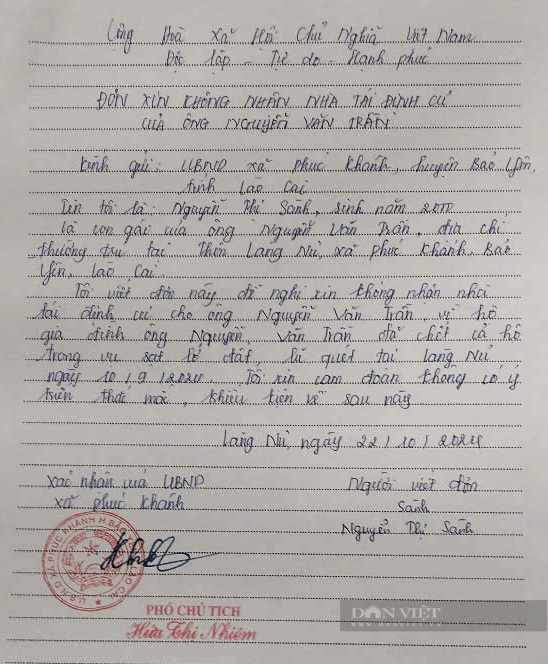 Cộng Hoà Xã Hội Chủ Nghĩa Việt Nam
Độc lập - Tự do - Hạnh phúc
ĐƠN XIN KHÔNG NHẬN NHÀ TÁI ĐỊNH CƯ
CỦA ÔNG NGUYỄN VĂN TRẦN
Kính gửi: UBND xã Phúc Khánh, huyện Bảo Yên,
tỉnh Lào Cai
Tên tôi là: Nguyễn Thị Sành, sinh năm
là con gái của ông Nguyễn Văn Trần, địa chỉ
thường trú tại Thôn Làng Nủ, xã Phúc Khánh, Bảo
Yên, Lào Cai
Tôi viết đơn này, đề nghị xin không nhận nhà
tái định cư cho ông Nguyễn Văn Trần, vì hộ
gia đình ông Nguyễn Văn Trần đã chết cả hộ
trong vụ sạt lở đất, lũ quét tại làng Nủ
ngày 10/9/2024. Tôi xin cam đoan không có ý
kiến thắc mắc, khiếu kiện về sau này.
Làng Nủ, ngày 22/10/2024
xác nhận của UBND
xã Phúc Khánh
Người viết đơn
Sành
Nguyễn Thị Sành
PHÓ CHỦ TỊCH
Hứa Thị Nhiệm
DÂN VIỆT